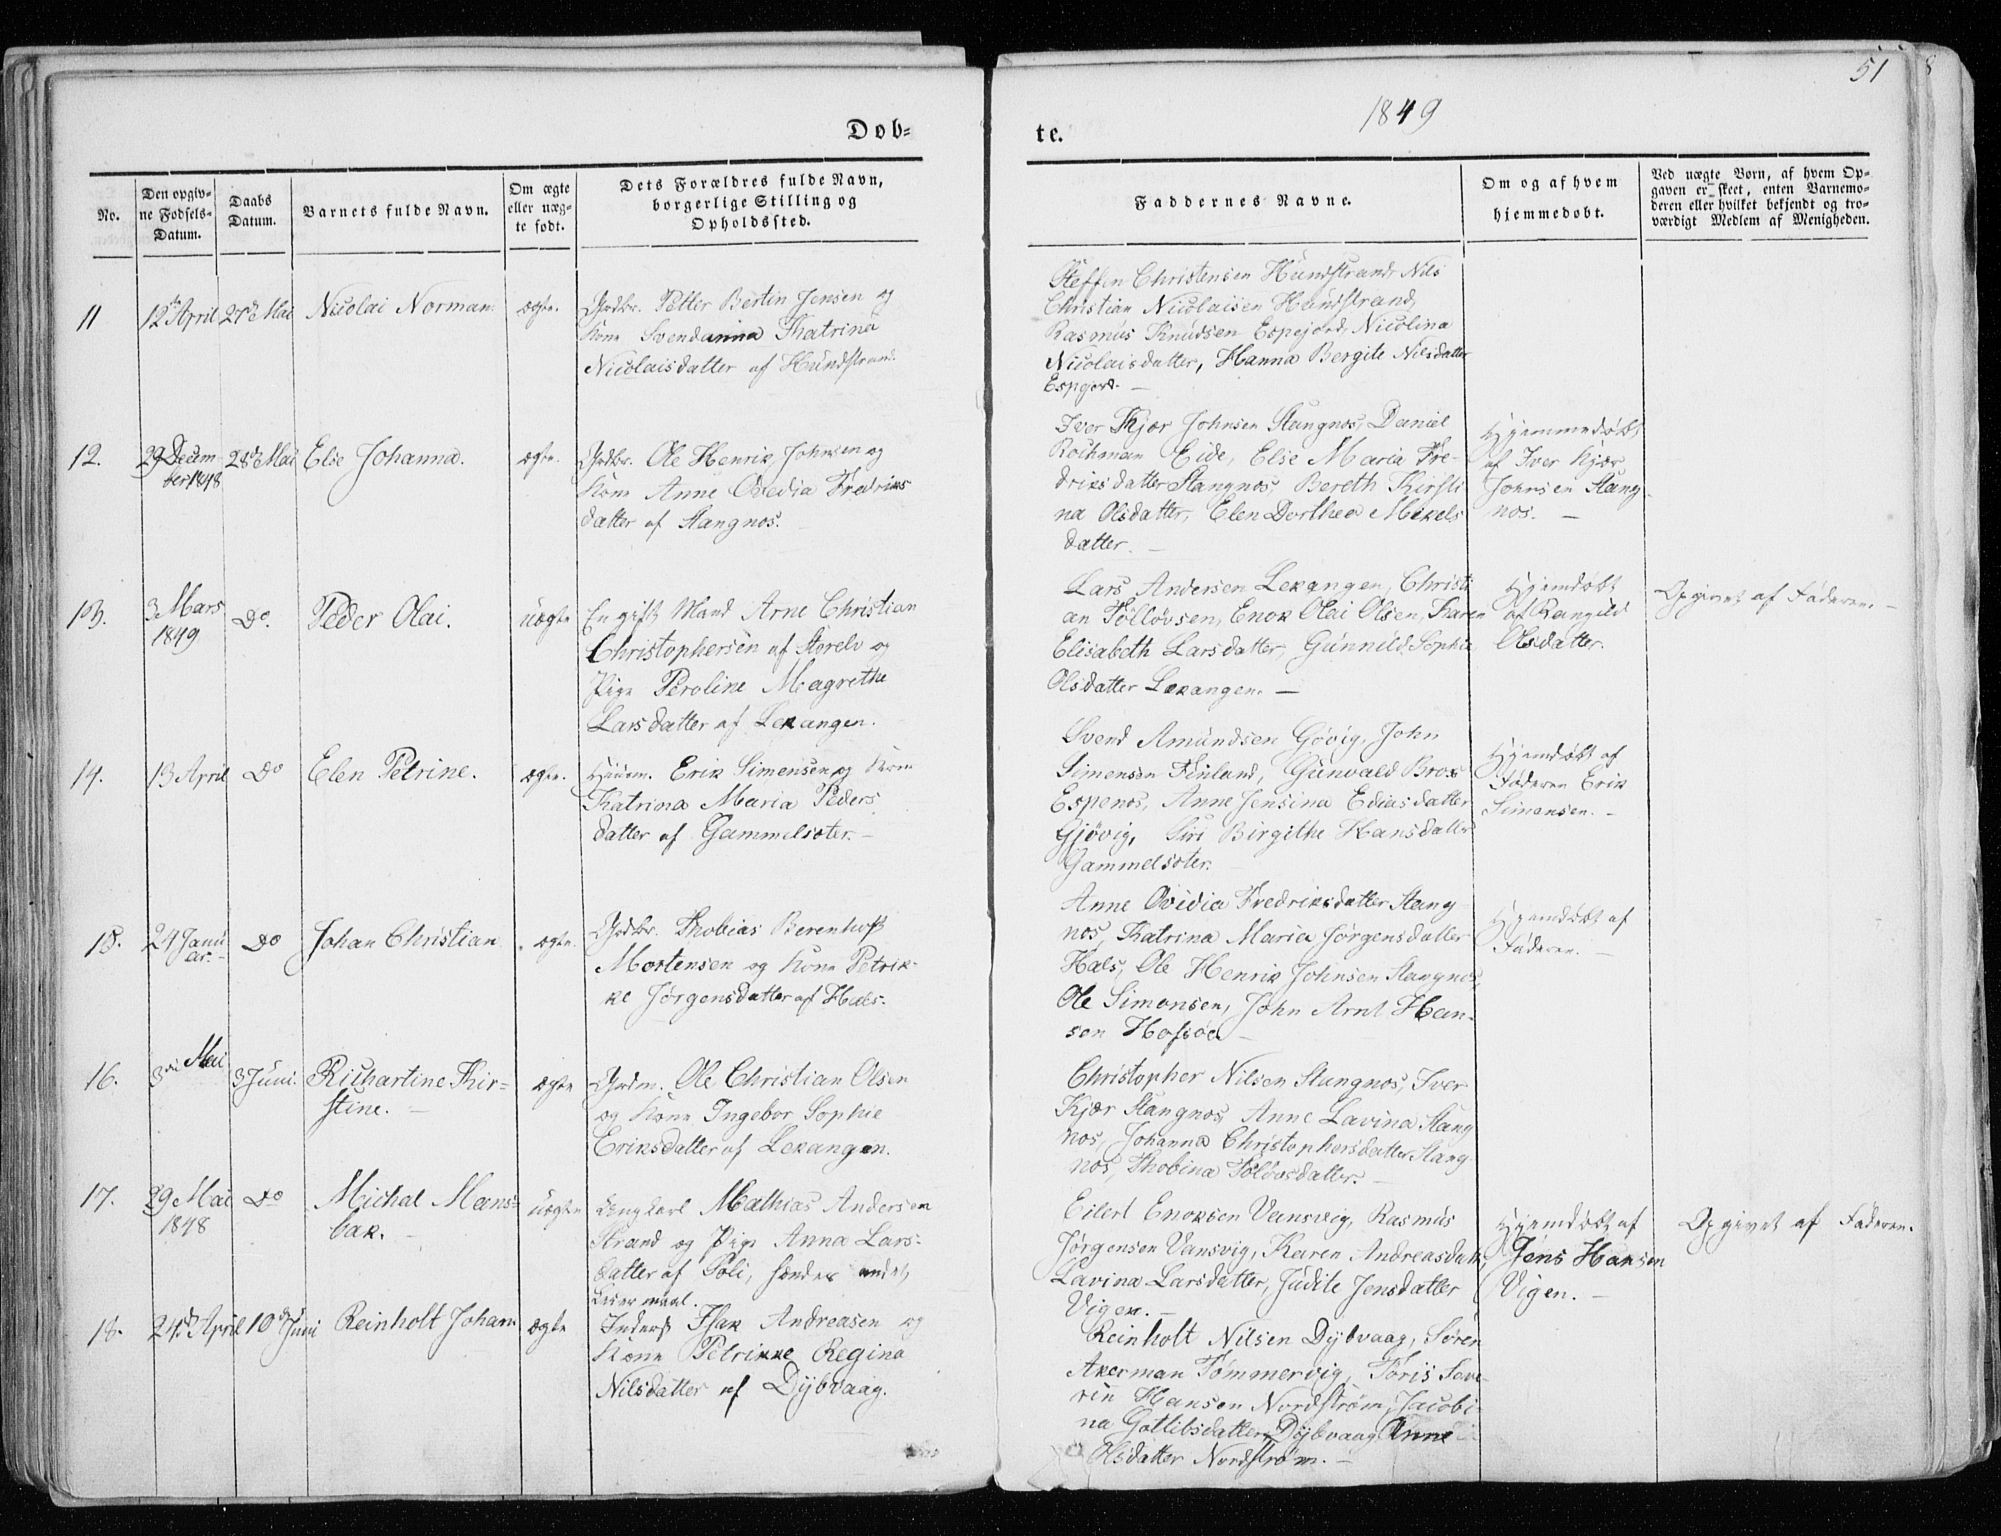 51
8
1849
Døb-
te.
No.
Den opgiv-
ne Fødsels-
Datum.
Daabs
Datum.
Barnets fulde Navn.
Om ægte
eller uæg-
te født.
Dets Forældres fulde Navn,
borgerlige Stilling og
Opholdssted.
Faddernes Navne.
Om og af hvem
hjemmedøbt.
Ved uægte Børn, af hvem Op-
gaven er skeet, enten Barnemo-
deren eller hvilket bekjendt og tro-
værdigt Medlem af Menigheden.
11
12te April
27de Mai
Nicolai Norman
ægte.
Grdbr. Petter Bertin Jensen og
Kone Svendanna Katrina
Nicolaisdatter af Hundstrand.
Steffen Christensen Hundstrand, Nils
Christian Nicolaisen Hundstrand,
Rasmus Knudsen Espejord, Nicolina
Nicolaisdatter, Hanna Bergite Nilsdatter
Espejord. —
12.
29 Decem-
ber 1848
28de Mai
Else Johanna.
ægte.
Grdbr. Ole Henrik Johnsen og
Kone Anne Ovedia Fredriks
datter af Stangnes.
Iver Kjær Johnsen Stangnos, Daniel
Eide, Else Maria Fre-
driksdatter Stangnos, Bereth Kirsti
na Olsdatter, Elen Dorthea Mikels
datter. —
Hjemmedøbt
af Iver Kjær
Johnsen Stang
nos. —
13.
3 Mars
1849
Do.
Peder Olai.
uægte
En gift Mand Arne Christian
Christophersen af Storelv og
Pige Peroline Magrethe
Larsdatter af Lekangen.
Lars Andersen Lekangen, Christi
an Tolløvsen, Enok Olai Olsen, Karen
Elisabeth Larsdatter, Gunnild Sophie
Olsdatter Lekangen. —
Hjemdøbt
af Rangild
Olsdatter.
Opgivet af Faderen. —
14.
13 April
Do
Elen Petrine.
ægte.
Huusm. Erik Simensen og Kone
Katrina Maria Peders
datter af Gammelsoter. —
Svend Amundsen Gjøvig, John
Simensen Finland, Gunvald Brox
Espenos, Anne Jensina Ediasdatter
Gjøvig, Siri Birgithe Hansdatter
Gammelsoter.
Hjemdøbt af
Faderen Erik
Simensen. —
15.
24 Janu
ar. —
Do
Johan Christian
ægte.
Grdbr. Thobias Berenhoft
Mortensen og Kone Petrik-
ke Jørgensdatter af Hals.
Anne Ovidia Fredriksdatter Stang
nos, Katrina Maria Jørgensdatter
Hals, Ole Henrik Johnsen Stangnos,
Ole Simonsen, John Arnt Han-
sen Hofsøe —
Hjemdøbt af
Faderen. —
16.
3die Mai
3 Juni.
Richartine Kir-
stine. —
ægte
Grdm. Ole Christian Olsen
og Kone Ingebor Sophie
Eriksdatter af Lekangen.
Christopher Nilsen Stangnos, Iver
Kjær Stangnos, Anne Lavina Stang
nos, Johanna Christophersdatter Stang
nos, Thobina Toløvsdatter. —
17.
29 Mai
1848
Do
Michal Mans-
bak. —
uægte
Ungkarl Mathias Andersen
Strand og Pige Anna Lars-
datter af Poli, hendes andet
Leiermaal.
Eilert Enoksen Vansvig, Rasmus
Jørgensen Vansvig, Karen Andreasdatt,
Lavina Larsdatter, Judite Jensdatter
Vigen. —
Hjemdøbt af
Jens Hansen
Vigen. —
Opgivet af Faderen.
18.
24de April
10de Juni
Reinholt Johan
ægte
Inderst Isak Andreasen og
Kone Petrikke Regina
Nilsdatter af Dybvaag.
Reinholt Nilsen Dybvaag, Søren
Akerman Tømmervig, Joris Seve-
rin Hansen Nordstrøm, Jacobi-
na Gottlibsdatter Dybvaag Anne
Olsdatter Nordstrøm. —